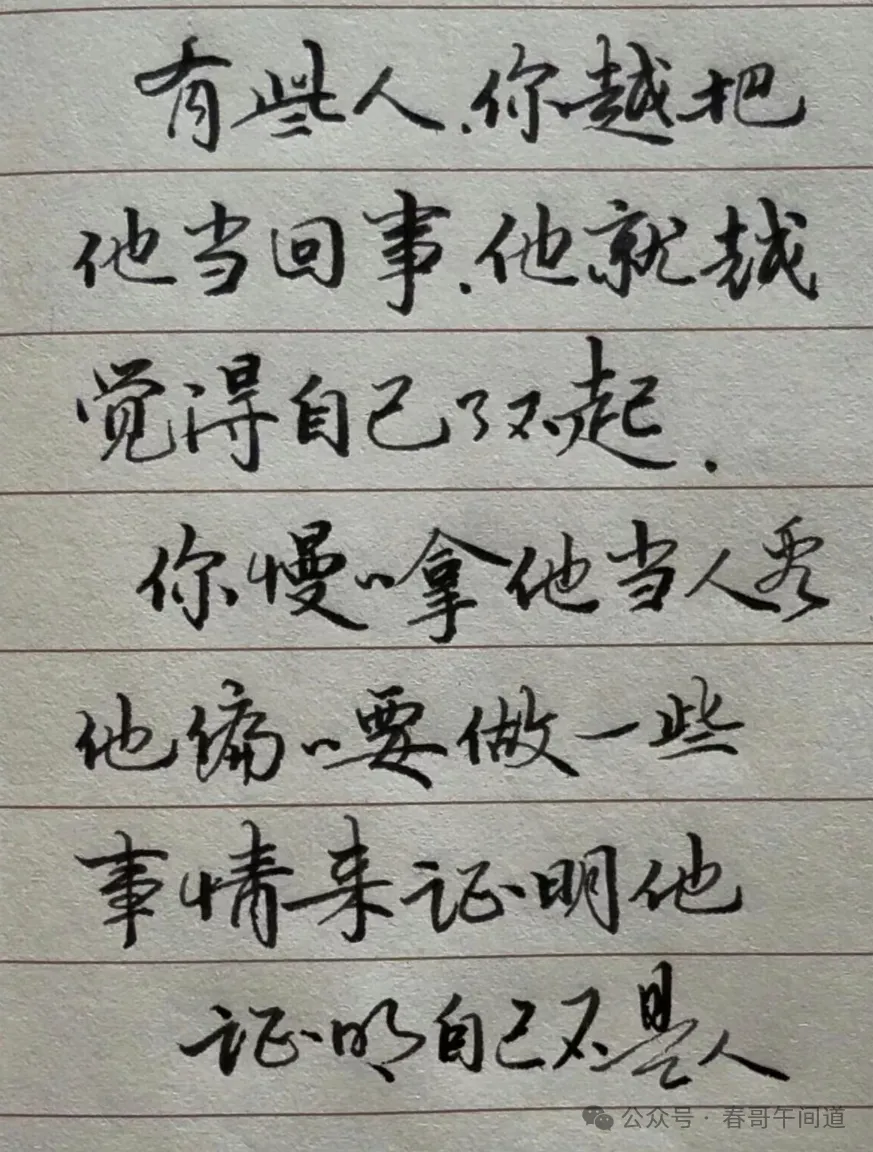 有些人、你越把
他当回事、他就越
觉得自己了不起.
你慢慢拿他当人看
他偏偏要做一些
事情来证明他
证明自己不是人
公众号·春哥午间道